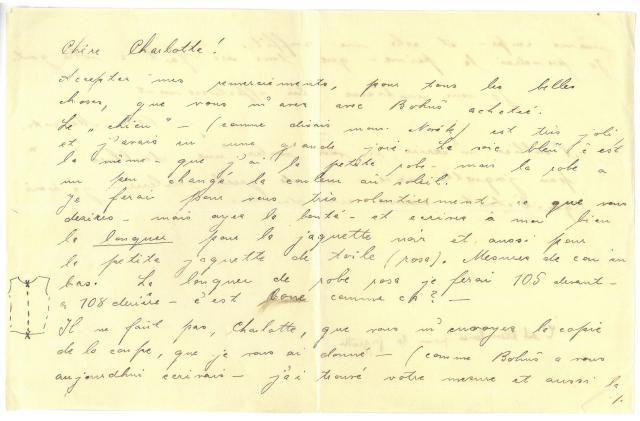 Chère Charlotte!
Accepter mes remerciements, pour tous les belles
choses, que vous m'avez avec Bohuš acheteé.
Le „chien" – (comme disais mons. Novák) est très joli
et j'avais eu une grande joié. La soie bleû c'est
la même – que j'ai la petite robe – mais la robe a
un peu changé la couleur au soleil.
Je ferai pour vous très volontierment – ce que vous
desirés – mais ayez la bonté – et ecrivez à moi bien
la longuer pour la jaquette noir et, aussi pour
la petite jaquette de toile (rosa). Mesurés de cou en
bas. La longuer de robe rosa je ferai 105 devant –
a 108 deriére – c'est bone comme ça? –
Il ne faût pas, Charlotte, que vous m'envoyez la copie
de la coupe, que je vous ai donné – (comme Bohuš a vous
aujourdhui ecrivais – j'ai trouvé votre mesure et aussi la
/.